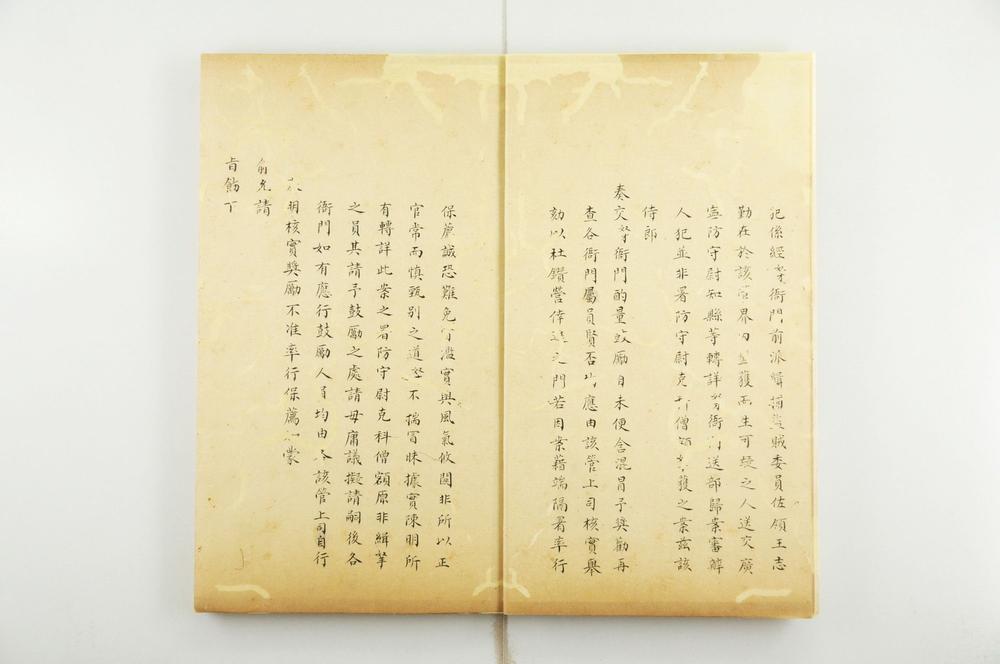 犯係經奴才衙門前派緝捕賊委員佐領王志
勤在於該界內獲而生可疑之人送交廣
寧防守尉知縣等轉詳奴才衙送部歸案審辦
人犯並非署防守尉克僧額拏獲之案茲該
侍郎
奏交奴才衙門酌量鼓勵自未便含混冒予獎勸再
查各衙門屬員賢否均應由該管上司核實舉
劾以杜鑽營倖進之門若因案藉端隔署率行
保薦誠恐難免冒濫實與風氣攸關非所以正
官常而慎甄別之道奴才不揣冒昧據實陳明所
有轉詳此案之署防守尉克科僧額原非緝拏
之員其請予鼓勵之處請毋庸議擬請嗣後各
衙門如有應行鼓勵人員均由各該管上司自行
明核實獎勵不准率行保薦如蒙
俞允請
旨飭下